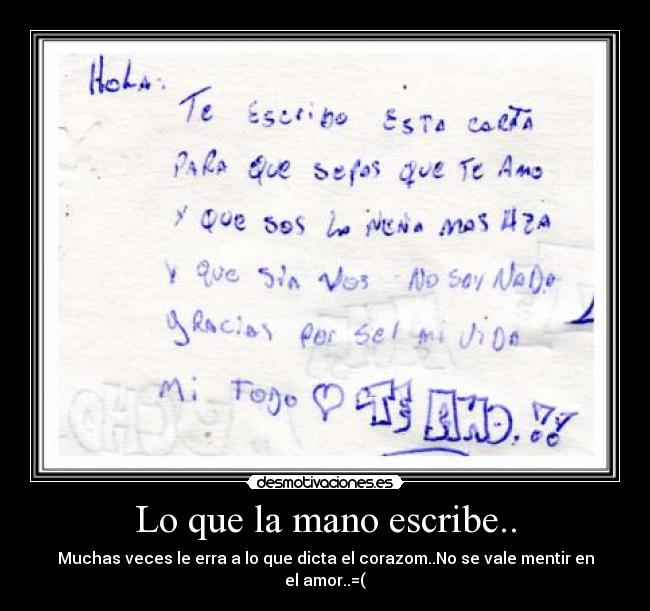 HoLA:
Te Escribo Esta carta
PARA que sepas que Te Amo
y que sos La Nena mas
y que sin vos No soy NADA
gracias por sel mi vida
Mi TODO ♡ TE AMO.!!
desmotivaciones.es
Lo que la mano escribe..
Muchas veces le erra a lo que dicta el corazom..No se vale mentir en
el amor..=(